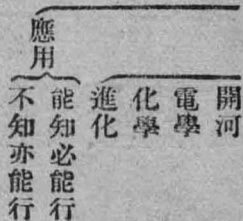 開河
電學
化學
進化
應用
能知必能行
不知亦能行